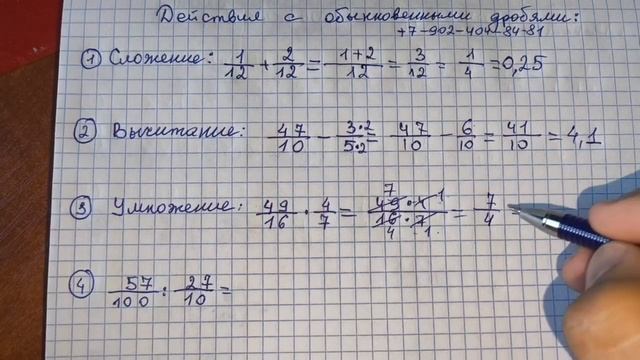 Действия с обыкновенными дробями:
+7-902-404-84-81
① Сложение: 1/12 + 2/12 = 1+2/12 = 3/12 = 1/4 = 0,25
② Вычитание: 47/10 - 3·2/5·2 = 47/10 - 6/10 = 41/10 = 4,1
③ Умножение: 49/16 · 4/7 = 49·4/16·7 = 7/4 =
④ 57/100 : 27/10 =